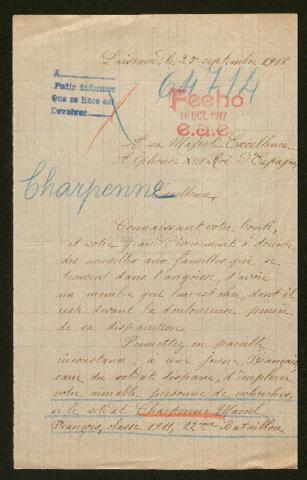 le 25 septembre 1917.
64714
A
Pedir informes
Que se hace en
Devolver
Fecho
10 OCT. 1917
e.a.e.
A sa Majesté Excellence
Alphonse XIII Roi d'Espagne
Charpenne
Excellence,
Connaissant votre bonté,
et votre grand dévouement à donner
des nouvelles aux familles qui se
trouvent dans l'angoisse, d'avoir
un membre qui leur est cher, dont il
reste devant la douloureuse pensée
de sa disparition.
Permettez, en pareille
circonstance, à une jeune Française
sœur du soldat disparu, d'implorer
votre aimable personne de recherches,
si le soldat Charpenne Marcel
François, classe 1911, 22ème Bataillon